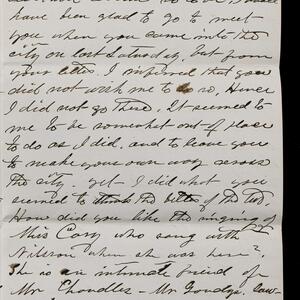 have been glad to go to meet
you when you came into the
city on last Saturday, but from
your letter, I inferred that you
did not wish me to do so. Hence
I did not go there. It seemed to
me to be somewhat out of place
to do as I did, and to leave you
to make your own way across
the city, yet I did what you
seemed to think the better of the two.
How did you like the singing of
Miss Cary who sang with
Nilsson when she was here?
She is an intimate friend of
Mr Chandler - Mr Goudge,